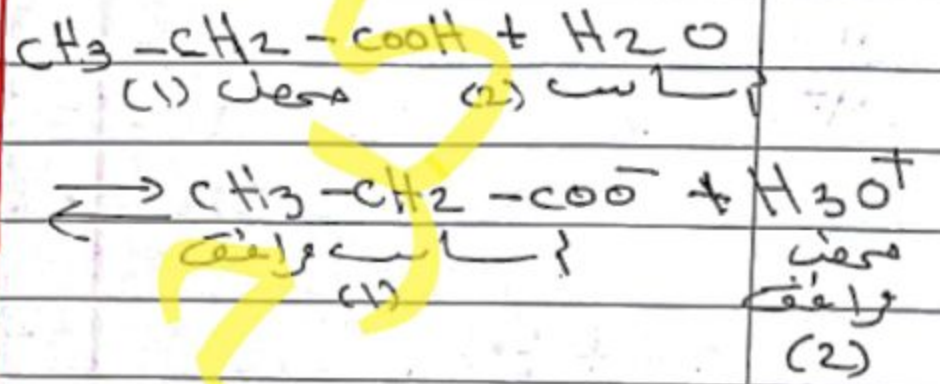 CH3-CH2-COOH + H2O
حمض (1) أساس (2)
⇌ CH3-CH2-COO⁻ + H3O⁺
أساس مرافق حمض
(1) مرافق
(2)